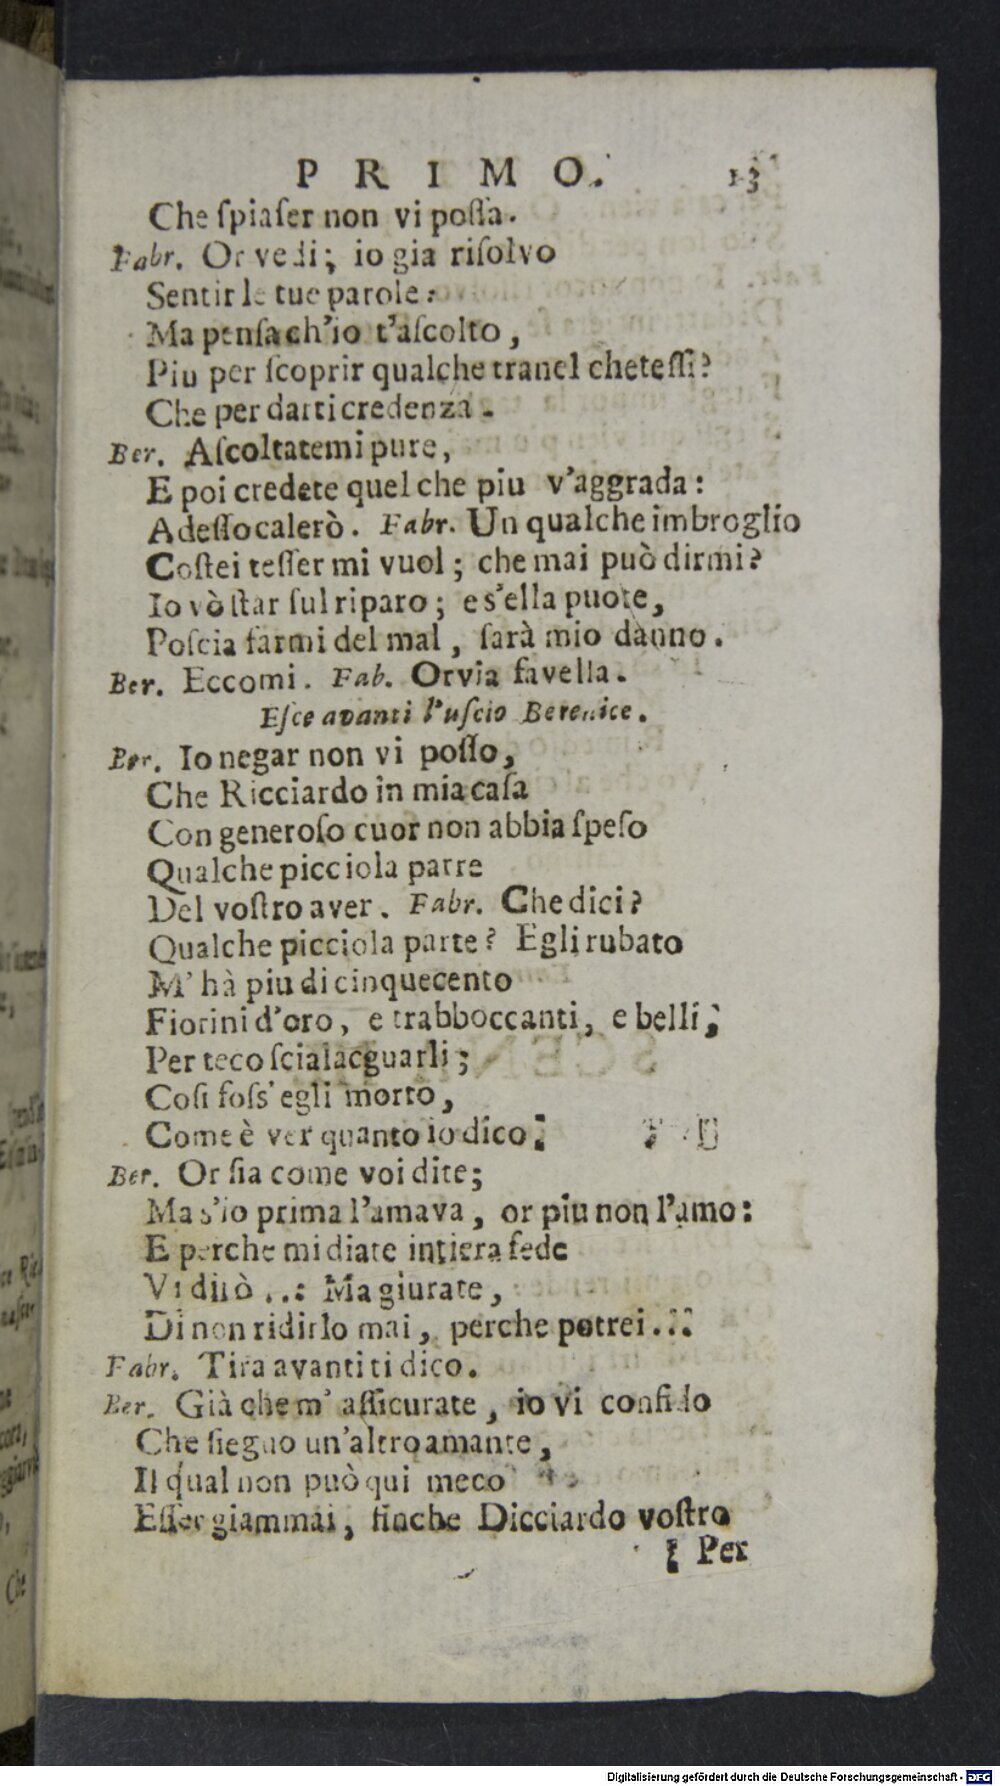 PRIMO. 13
Che ſpiaſer non vi poſſa.
Fabr. Or vedi; io gia riſolvo
Sentir le tue parole:
Ma penſa ch'io t'aſcolto,
Piu per ſcoprir qualche tranel che teſſi?
Che per darti credenza.
Ber. Aſcoltatemi pure,
E poi credete quel che piu v'aggrada:
Adeſſo calerò. Fabr. Un qualche imbroglio
Coſtei teſſer mi vuol; che mai può dirmi?
Io vò ſtar ſul riparo; e s'ella puote,
Poſcia farmi del mal, ſarà mio danno.
Ber. Eccomi. Fab. Orvia favella.
Eſce avanti l'uſcio Berenice.
Ber. Io negar non vi poſſo,
Che Ricciardo in mia caſa
Con generoſo cuor non abbia ſpeſo
Qualche picciola parre
Del voſtro aver. Fabr. Che dici?
Qualche picciola parte? Egli rubato
M'hà piu di cinquecento
Fiorini d'oro, e trabboccanti, e belli;
Per teco ſcialacguarli;
Coſi foſs'egli morto,
Come è ver quanto io dico:
Ber. Or ſia come voi dite;
Ma s'io prima l'amava, or piu non l'amo:
E perche mi diate intiera fede
Vi dirò ..: Ma giurate,
Di non ridirlo mai, perche potrei...
Fabr. Tira avanti ti dico.
Ber. Già che m'aſſicurate, io vi confido
Che ſieguo un'altro amante,
Il qual non può qui meco
Eſſer giammai, finche Dicciardo voſtro
Per
Digitalisierung gefördert durch die Deutsche Forschungsgemeinschaft - DFG